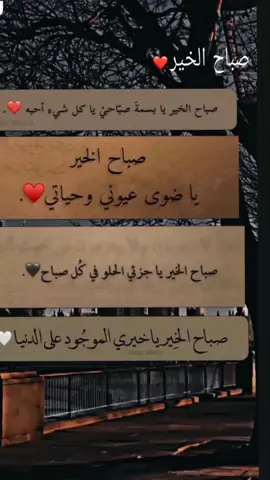 صباح الخير❤️
صباح الخير يا بسمةَ صبّاحيْ يا كل شيء أحبه ❤️.
صباح الخير
يا ضوى عيوني وحياتي❤️.
صباح الخير يا جزئي الحلو في كُل صباح🖤.
صباح الخِير ياخيري الموجُود على الدنيا🤍